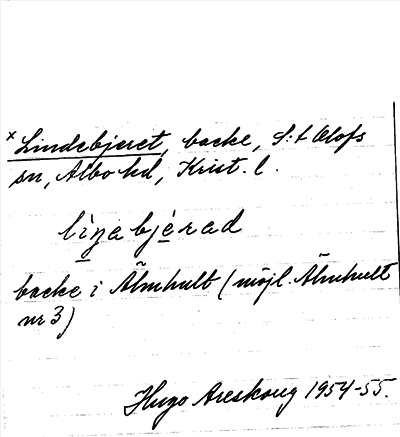 × Lindebjeret, backe, S:t Olofs
sn, Albo hd, Krist. l.
lìṇabjérad
backe i Älmhult (möjl. Älmhult
nr 3)
Hugo Areskoug 1954-55.